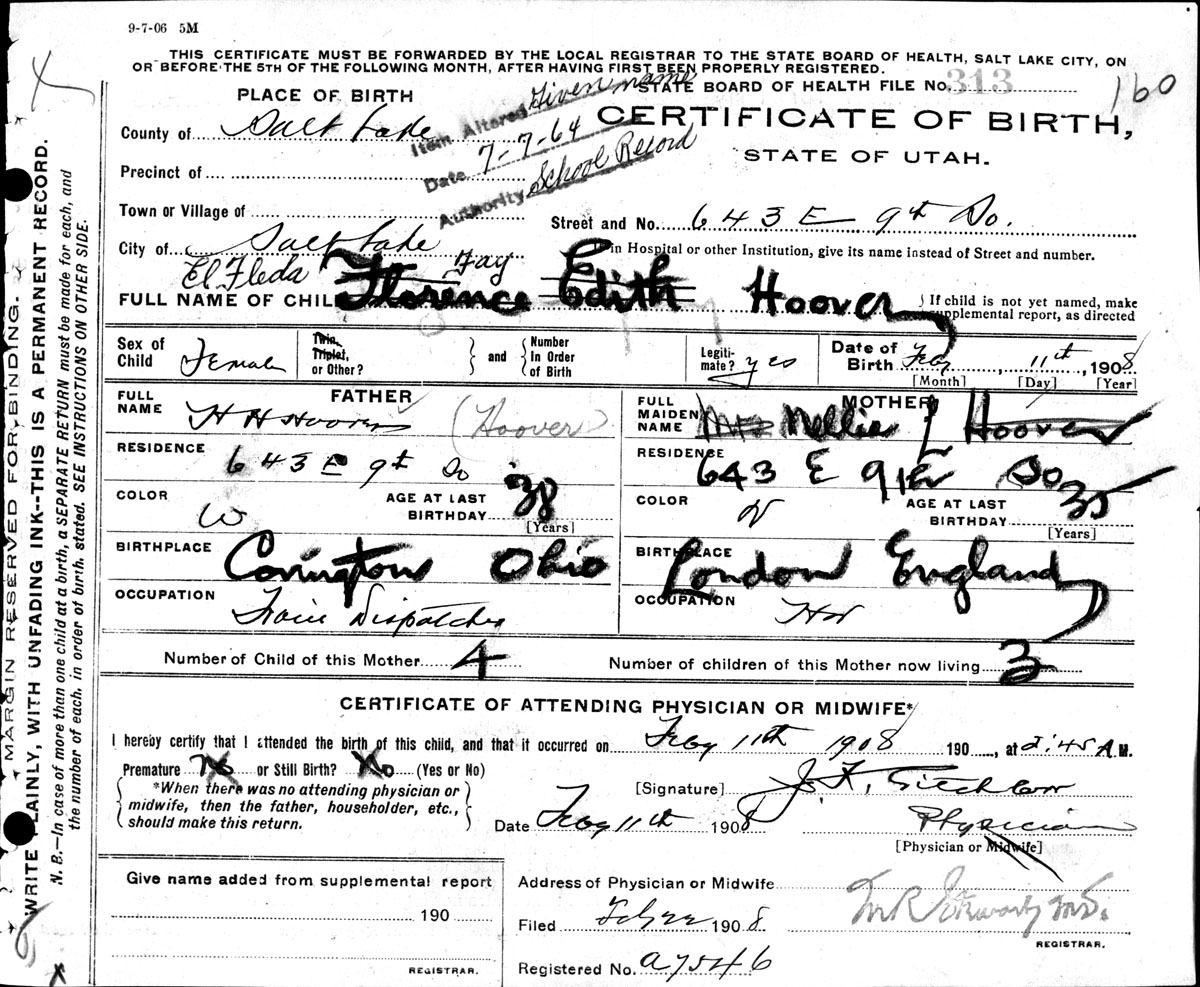 9-7-06 5M
THIS CERTIFICATE MUST BE FORWARDED BY THE LOCAL REGISTRAR TO THE STATE BOARD OF HEALTH, SALT LAKE CITY, ON
OR BEFORE THE 5TH OF THE FOLLOWING MONTH, AFTER HAVING FIRST BEEN PROPERLY REGISTERED.
STATE BOARD OF HEALTH FILE No. 313
160
PLACE OF BIRTH
Item Altered Given name
Date 7-7-64
Authority School Record
CERTIFICATE OF BIRTH,
STATE OF UTAH.
County of Salt Lake
Precinct of
Town or Village of
Street and No. 643 E 9th So.
City of Salt Lake
in Hospital or other Institution, give its name instead of Street and number.
El Fleda Fay
FULL NAME OF CHILD Florence Edith Hoover
If child is not yet named, make
supplemental report, as directed
Sex of Child Female
Twin, Triplet, or Other?
and
Number In Order of Birth
Legitimate? yes
Date of Birth Feby 11th, 1908
[Month] [Day] [Year]
FATHER
FULL NAME H H Hoover (Hoover)
RESIDENCE 643 E 9th So
COLOR W
AGE AT LAST BIRTHDAY 38
[Years]
BIRTHPLACE Covington Ohio
OCCUPATION Train Dispatcher
MOTHER
FULL MAIDEN NAME Mrs Nellie L Hoover
RESIDENCE 643 E 9th So
COLOR W
AGE AT LAST BIRTHDAY 35
[Years]
BIRTHPLACE London England
OCCUPATION HW
Number of Child of this Mother 4
Number of children of this Mother now living 3
CERTIFICATE OF ATTENDING PHYSICIAN OR MIDWIFE*
I hereby certify that I attended the birth of this child, and that it occurred on Feby 11th 1908 190 , at 2:45 A.M.
Premature No or Still Birth? No (Yes or No)
*When there was no attending physician or
midwife, then the father, householder, etc.,
should make this return.
[Signature] J. F.
Date Feby 11th 1908
Physician
[Physician or Midwife]
Give name added from supplemental report
190
REGISTRAR.
Address of Physician or Midwife
Filed Feb 22 1908
M.D.
REGISTRAR.
Registered No. a7546
MARGIN RESERVED FOR BINDING.
WRITE PLAINLY, WITH UNFADING INK--THIS IS A PERMANENT RECORD.
N. B.—In case of more than one child at a birth, a SEPARATE RETURN must be made for each, and
the number of each, in order of birth, stated. SEE INSTRUCTIONS ON OTHER SIDE.